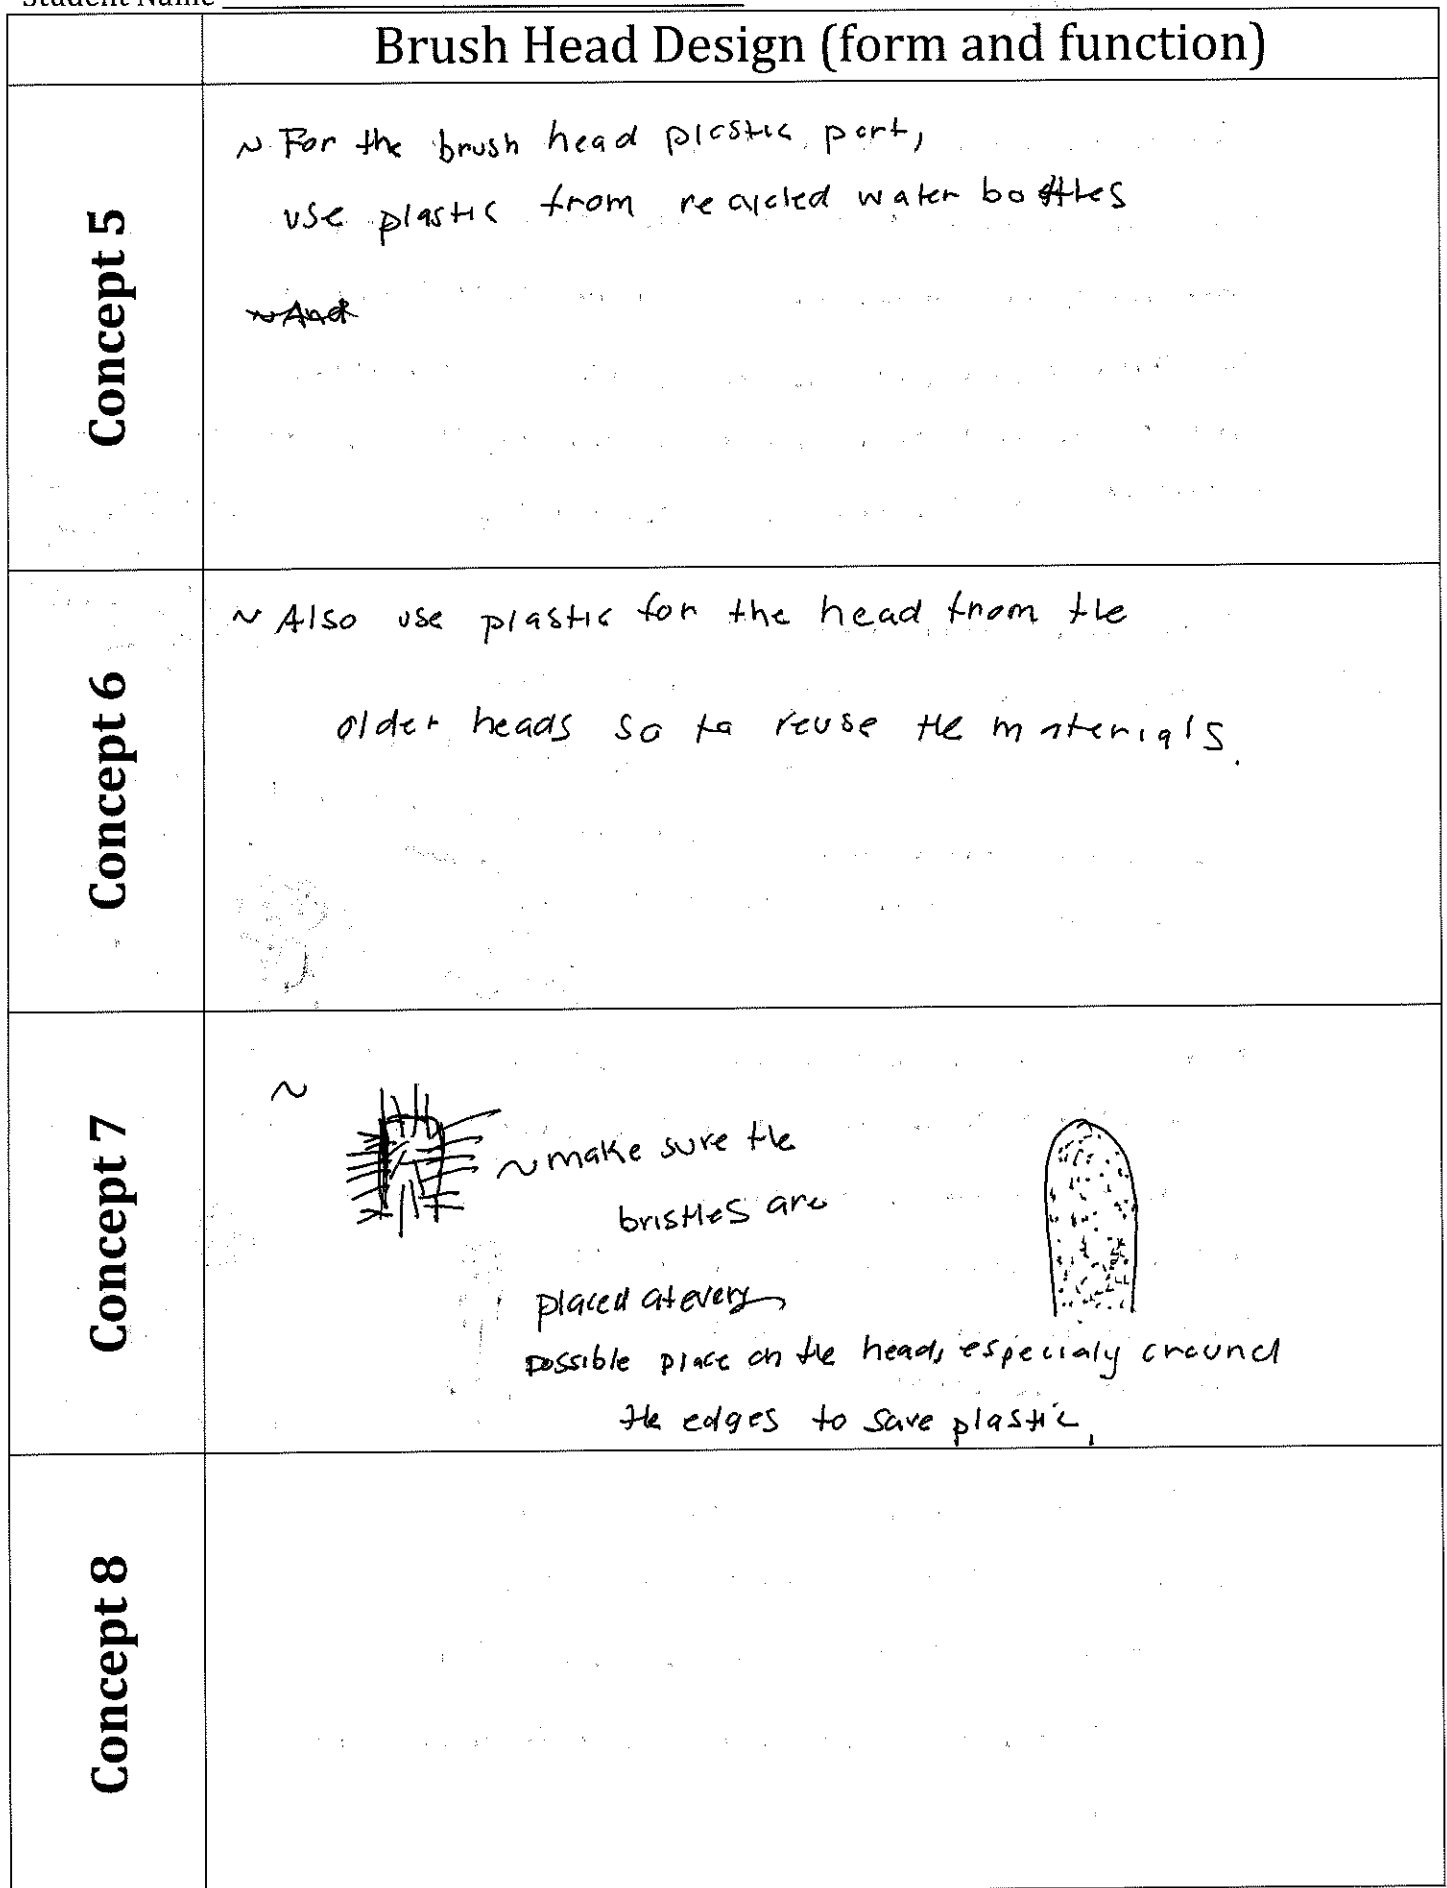 Student Name
Brush Head Design (form and function)
Concept 5
~ For the brush head plastic part,
use plastic from recycled water bottles
~ And
Concept 6
~ Also use plastic for the head from the
older heads so to reuse the materials.
Concept 7
~
~ make sure the
bristles are
placed at every
possible place on the head, especialy around
the edges to save plastic.
Concept 8